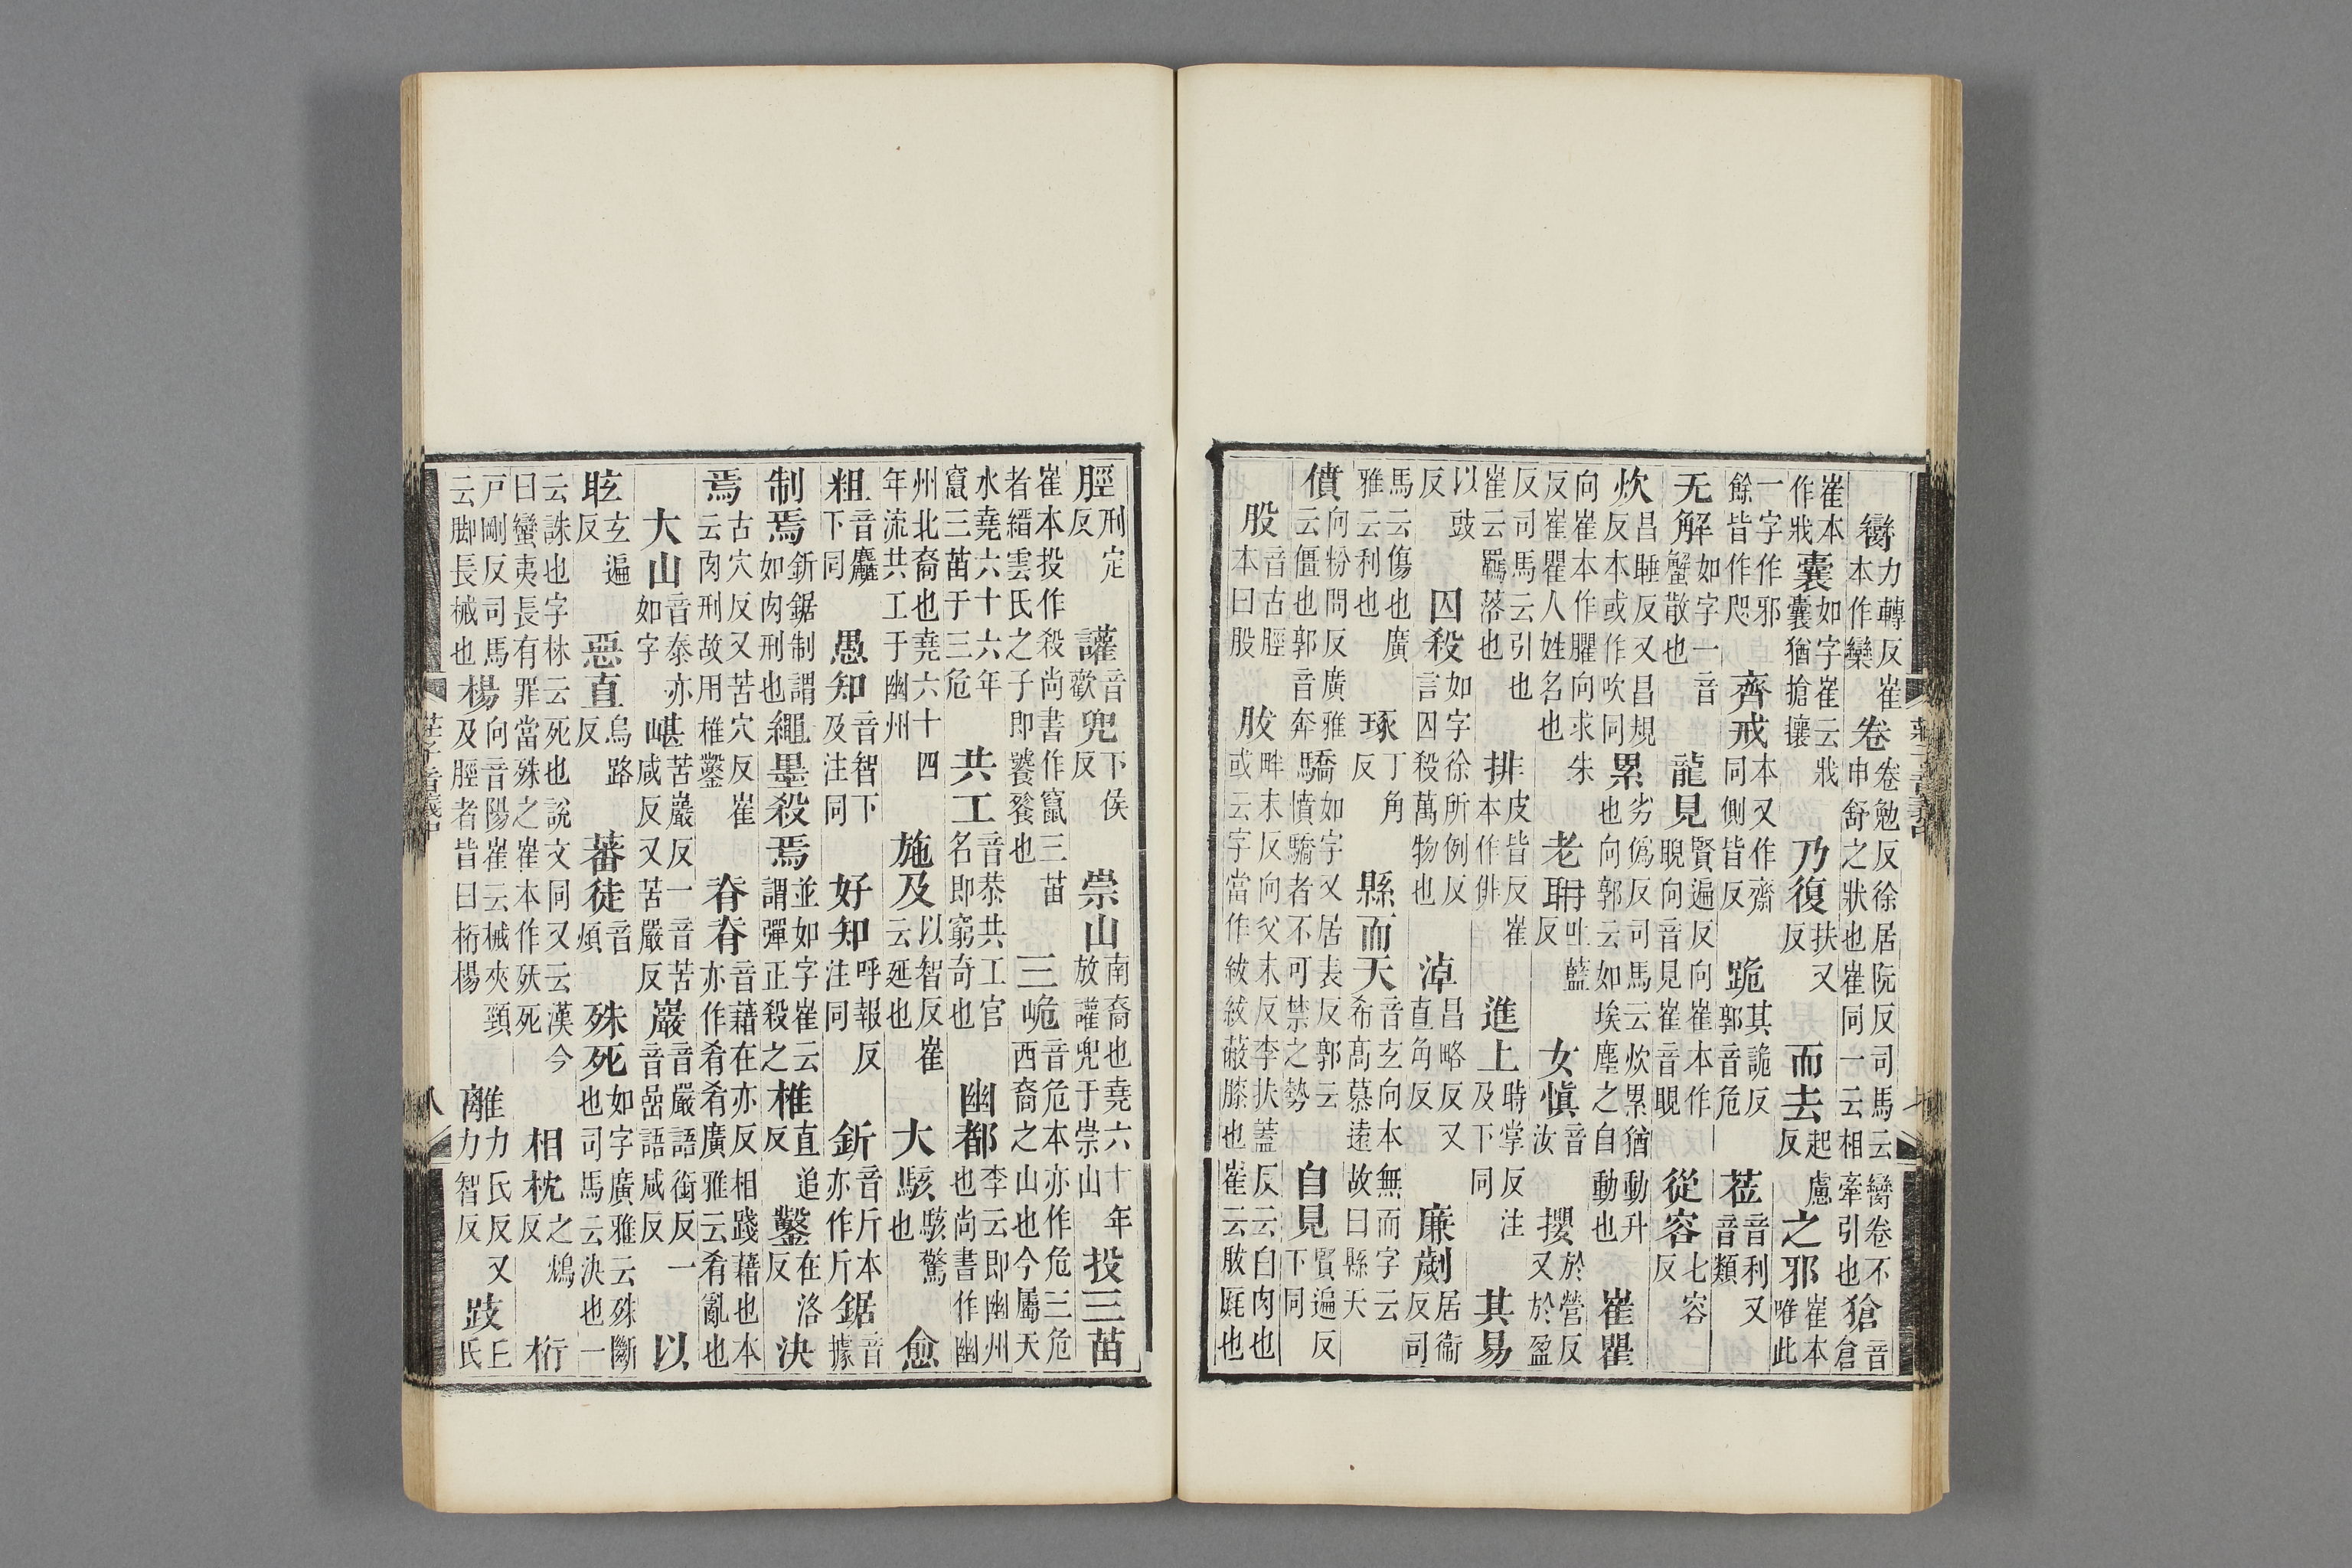 臠力轉反崔本作欒卷卷勉反徐居阮反司馬云臠卷不申舒之狀也崔同一云相牽引也獊音倉
崔本作戕囊如字崔云戕囊猶搶攘乃復扶又反而去起慮反之邪崔本唯此
一字作邪餘皆作咫齊戒本又作齋同側皆反跪其詭反郭音危莅音利又音類
无解如字一音蟹散也龍見賢遍反向崔本作睍向音見崔音睍從容七容反
炊昌睡反又昌規反本或作吹同累劣偽反司馬云炊累猶動升也向郭云如埃塵之自動也崔瞿
向崔本作臞向求朱反崔瞿人姓名也老聃吐藍反女愼音汝攖於營反又於盈
反司馬云引也崔云羈落也排皮皆反崔本作俳進上時掌反注及下同其易
以豉反囚殺如字徐所例反言囚殺萬物也淖昌略反又直角反廉劌居衞反司
馬云傷也廣雅云利也琢丁角反縣而天音玄向本無而字云希高慕遠故曰縣天
僨向粉問反廣雅云僵也郭音奔驕如字又居表反郭云僨驕者不可禁之勢自見賢遍反下同
股音古脛本曰股胈畔末反向父末反李扶蓋反云白肉也或云字當作紱紱蔽膝也崔云胈也
脛刑定反讙音歡兜下侯反崇山南裔也堯六十年放讙兜于崇山投三苗
崔本投作殺尚書作竄三苗者縉雲氏之子即饕餮也三峗音危本亦作危三危西裔之山也今屬天
水堯六十六年竄三苗于三危共工音恭共工官名即窮奇也幽都李云即幽州也尚書作幽
州北裔也堯六十四年流共工于幽州施及以智反崔云延也大駭駭驚也愈
粗音麤下同愚知音智下及注同好知呼報反注同釿音斤本亦作斤鋸音據
制焉釿鋸制謂如肉刑也繩墨殺焉並如字崔云謂彈正殺之椎直追反鑿在洛反決
焉古穴反又苦穴反崔云肉刑故用椎鑿脊脊音藉在亦反相踐藉也本亦作肴肴廣雅云肴亂也
大山音泰亦如字嵁苦巖反一音苦咸反又苦嚴反巖音嚴語銜反一音喦語咸反以
眩玄遍反惡直烏路反蕃徒音煩殊死如字廣雅云殊斷也司馬云決也一
云誅也字林云死也說文同又云漢今曰蠻夷長有罪當殊之崔本作殀死相枕之鴆反桁
戸剛反司馬云脚長械也楊向音陽崔云械夾頸及脛者皆曰桁楊離力氏反又力智反跂氏